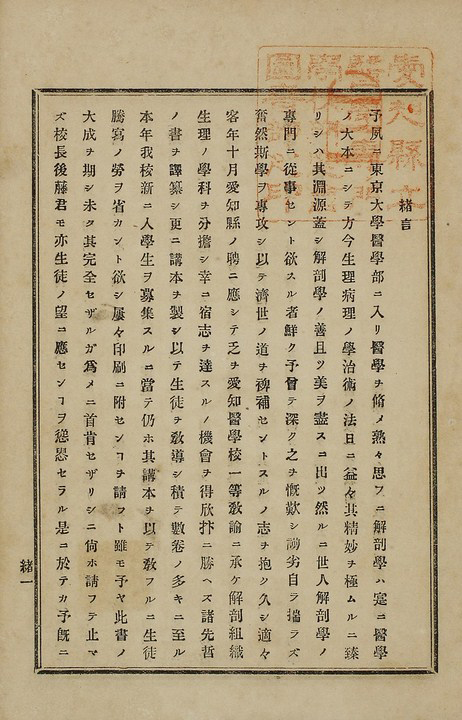 緒言
予夙ニ東京大學醫學部ニ入リ醫學ヲ脩メ熟々思フニ解剖學ハ寔ニ醫學
ノ大本ニシテ方今生理病理ノ學治術ノ法日ニ益々其精妙ヲ極ムルニ臻
リシハ其淵源蓋シ解剖學ノ善且ツ美ヲ盡スニ出ツ然ルニ世人解剖學ノ
專門ニ從事セント欲スル者鮮ク予曾テ深ク之ヲ慨歎シ謭劣自ラ揣ラズ
奮然斯學ヲ專攻シ以テ濟世ノ道ヲ裨補セントスルノ志ヲ抱ク久シ適々
客年十月愛知縣ノ聘ニ應シテ乏ヲ愛知醫學校一等敎諭ニ承ケ解剖組織
生理ノ學科ヲ分擔シ幸ニ宿志ヲ達スルノ機會ヲ得欣抃ニ勝ヘズ諸先哲
ノ書ヲ譯纂シ更ニ講本ヲ製シ以テ生徒ヲ敎導シ積テ數卷ノ多キニ至ル
本年我校新ニ入學生ヲ募集スルニ當テ仍ホ其講本ヲ以テ敎フルニ生徒
謄寫ノ勞ヲ省カント欲シ屢々印刷ニ附センコヲ請フト雖モ予ヤ此書ノ
大成ヲ期シ未タ其完全セザルガ爲メニ首肯セザリシニ尙ホ請フテ止マ
ズ校長後藤君モ亦生徒ノ望ニ應センコヲ慫慂セラル是ニ於テカ予旣ニ
緒一